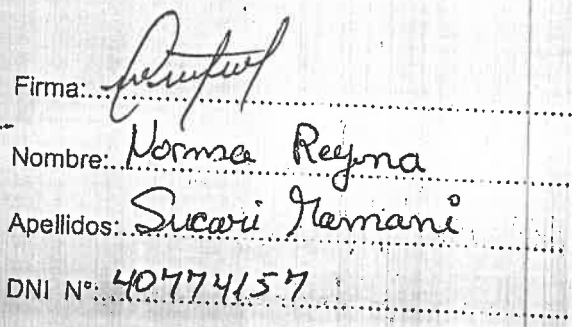 Firma:
Nombre: Norma Reyna
Apellidos: Sucari Mamani
DNI N°: 40774157